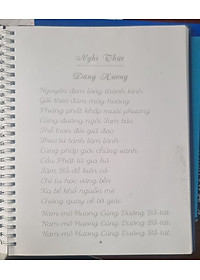 Nghi Thức
Dâng Hương
Nguyện đem lòng thành kính
Gởi theo đám mây hương
Phảng phất khắp mười phương
Cúng dường ngôi Tam bảo
Thề trọn đời giữ đạo
Theo tự tánh làm lành
Cùng pháp giới chúng sanh
Cầu Phật từ gia hộ
Tâm Bồ đề kiên cố
Chí tu học vững bền
Xa bể khổ nguồn mê
Chóng quay về bờ giác.
Nam-mô Hương Cúng Dường Bồ-tát.
Nam-mô Hương Cúng Dường Bồ-tát.
Nam-mô Hương Cúng Dường Bồ-tát.